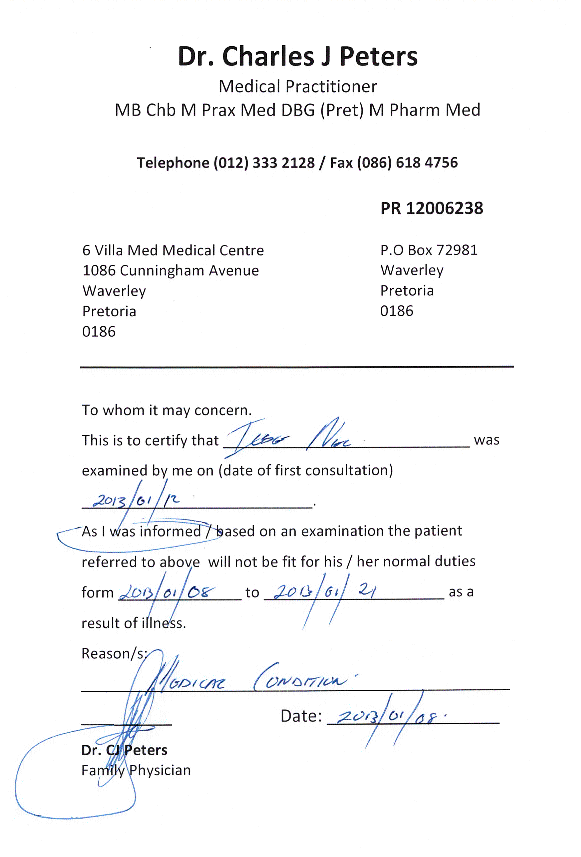 Dr. Charles J Peters
Medical Practitioner
MB Chb M Prax Med DBG (Pret) M Pharm Med
Telephone (012) 333 2128 / Fax (086) 618 4756
PR 12006238
6 Villa Med Medical Centre
1086 Cunningham Avenue
Waverley
Pretoria
0186
P.O Box 72981
Waverley
Pretoria
0186
To whom it may concern.
This is to certify that was
examined by me on (date of first consultation)
2013/01/12 .
As I was informed / based on an examination the patient
referred to above will not be fit for his / her normal duties
form 2013/01/08 to 2013/01/21 as a
result of illness.
Reason/s:
MEDICAL CONDITION
Date: 2013/01/08.
Dr. CJ Peters
Family Physician